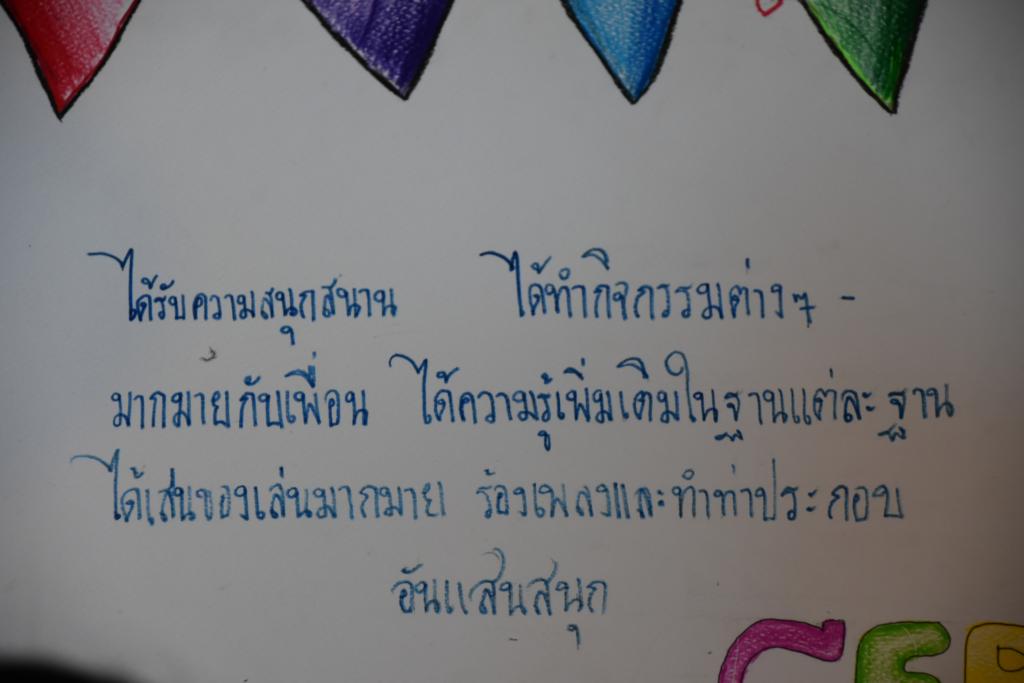 ได้รับความสนุกสนาน ได้ทำกิจกรรมต่างๆ -
มากมายกับเพื่อน ได้ความรู้เพิ่มเติมในฐานแต่ละฐาน
ได้เส่นของเล่นมากมาย ร้องเพลงและทำท่าประกอบ
อันแสนสนุก